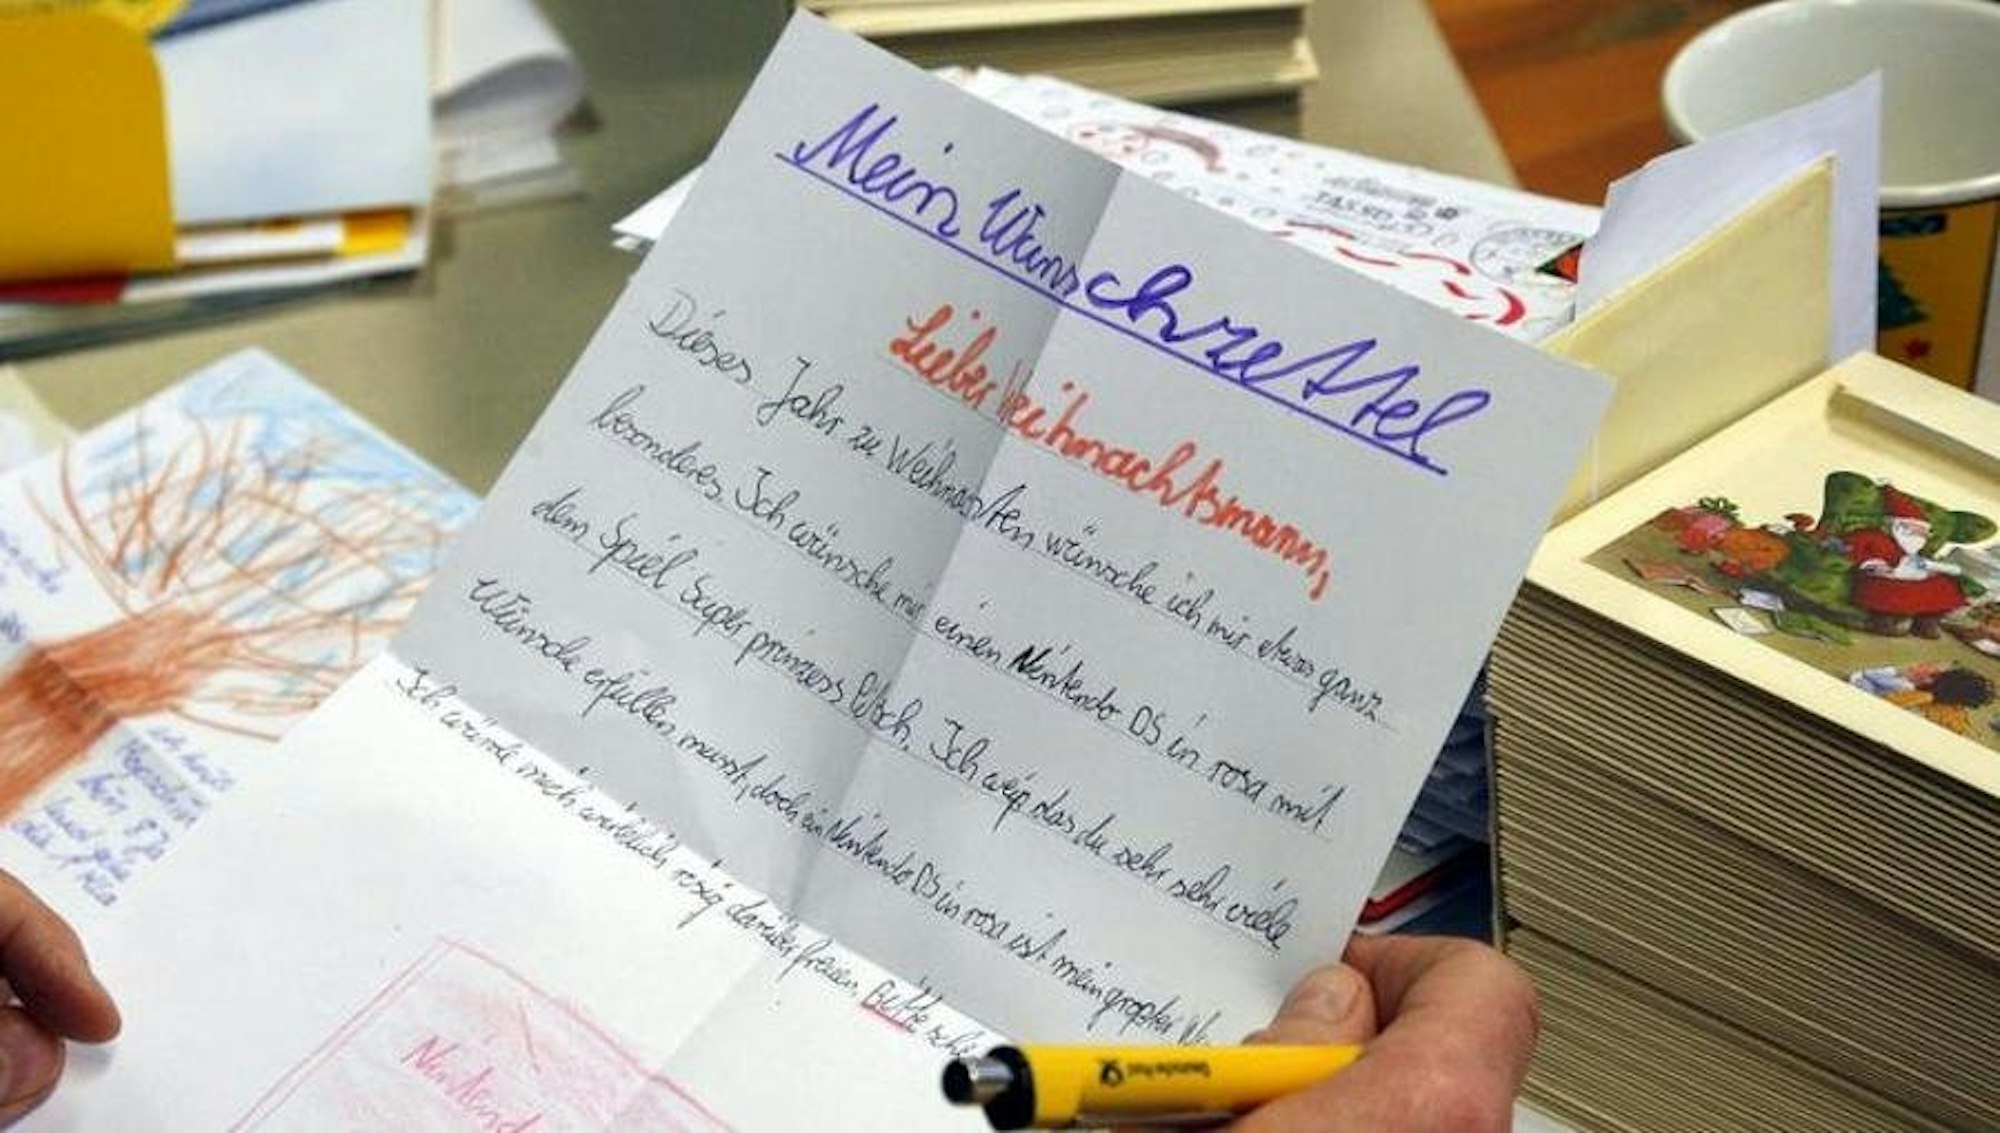 Mein Wunschzettel
Lieber Weihnachtsmann,
Dieses Jahr zu Weihnachten wünsche ich mir etwas ganz
besonderes. Ich wünsche mir einen Nintendo DS in rosa mit
dem Spiel Super prinzess Peach. Ich weiß das du sehr sehr viele
Wünsche erfüllen musst, doch ein Nintendo DS in rosa ist mein größter
Ich würde mich wirklich rießig darüber freuen. Bitte
Nintendo
bin 8
Deutsche Post